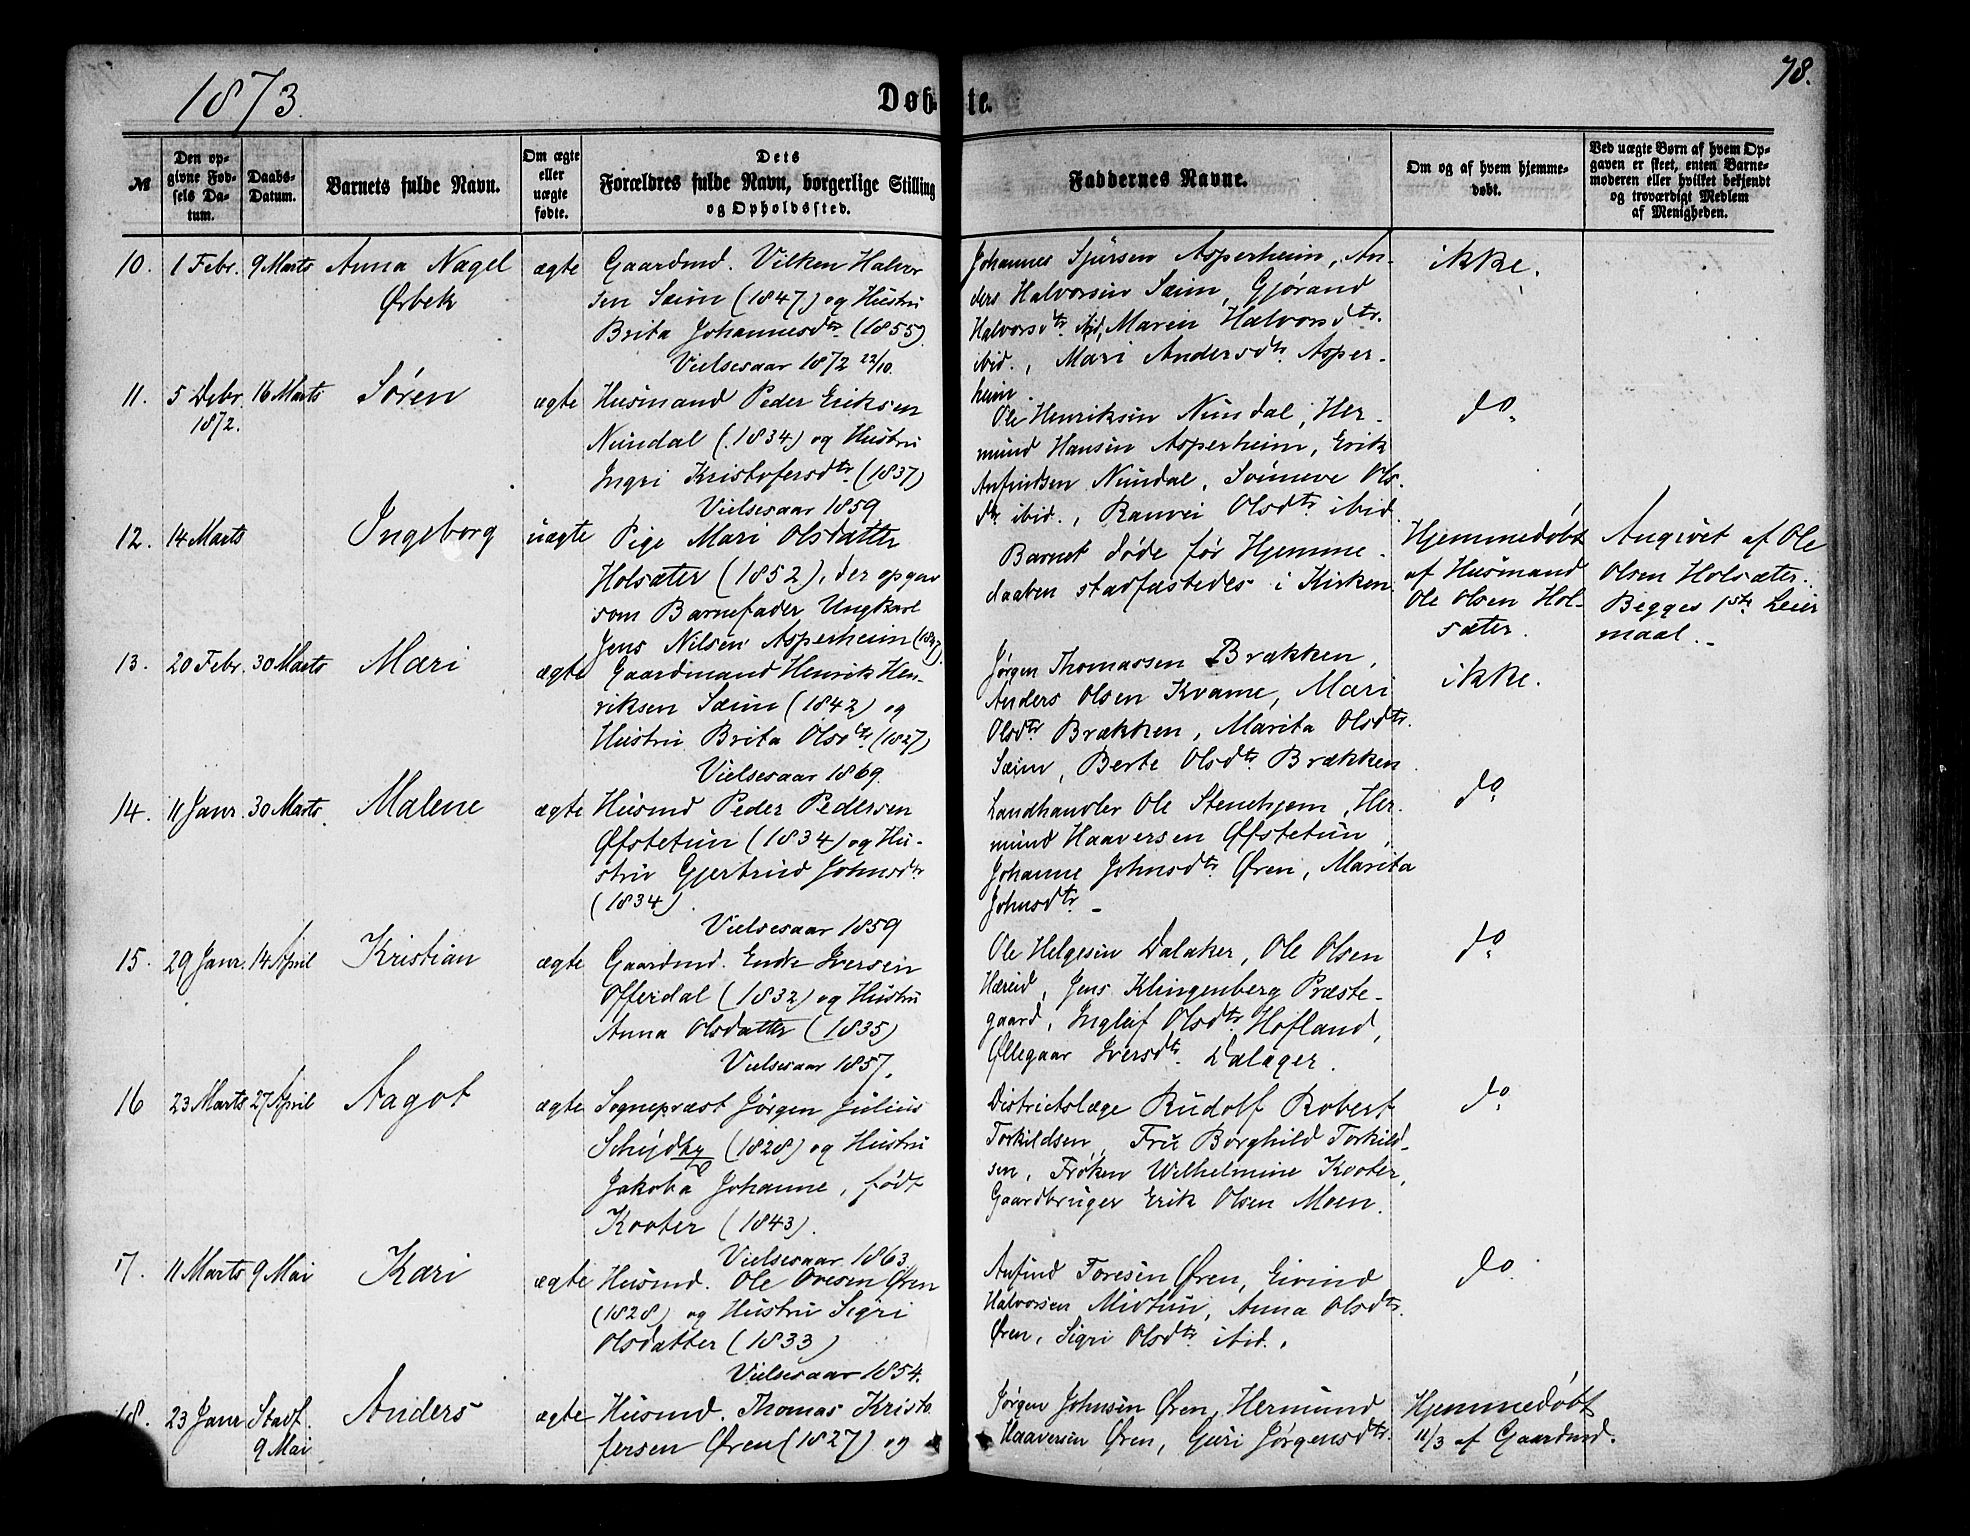 1873.
Døbte.
78.
№
Den opgivne Fødsels Datum.
Daabs-Datum.
Barnets fulde Navn.
Om ægte eller uægte fødte.
Dets Forældres fulde Navn, borgerlige Stilling og Opholdssted.
Faddernes Navne.
Om og af hvem hjemmedøbt.
Ved uægte Børn af hvem Opgaven er skeet, enten Barnemoderen eller hvilket bekjendt og troværdigt Medlem af Menigheden.
10. 1 Febr. 9 Marts Anna Nagel
Ørbek
ægte
Gaardmd. Vilken Halvor
sen Sæim (1847) og Hustru
Brita Johannesdtr. (1855)
Vielsesaar 1872 22/10.
Johannes Sjursen Asperheim, An-
ders Halvorsen Sæim, Gjørand
Halvorsdtr. ibid, Maren Halvorsdtr.
ibid., Mari Andersdtr. Asper-
heim.
ikke.
11. 5 Debr. 16 Marts Søren
1872.
ægte
Husmand Peder Eriksen
Nundal (1834) og Hustru
Ingri Kristofersdtr. (1837)
Vielsesaar 1859
Ole Henriksen Nundal, Her-
mund Hansen Asperheim, Erik
Anfindsen Nundal, Svinneve Ols-
dtr. ibid., Ranvei Olsdtr. ibid.
do.
12. 14 Marts Ingeborg
uægte
Pige Mari Olsdatter
Holsæter (1852), der opgav
som Barnefader Ungkarl
Jens Nilsen Asperheim
Barnet døde før Hjemme-
daaben stadfæstedes i Kirken.
Hjemmedøbt
af Husmand
Ole Olsen Hol-
sæter.
Angivet af Ole
Olsen Holsæter.
Begges 1ste Leier
maal.-
13. 20 Febr. 30 Marts Mari
ægte
Gaardmand Henrik Hen-
riksen Sæim (1842) og
Hustru Brita Olsdtr. (1827)
Vielsesaar 1869.
Jørgen Thomassen Brækken,
Anders Olsen Kvame, Mari
Olsdtr. Brækken, Marita Olsdtr.
Sæim, Berte Olsdtr. Brækken
ikke.
14. 11 Janr. 30 Marts. Malene
ægte
Husmd Peder Pedersen
Øfstetun (1834) og Hu-
stru Gjertrud Johnsdtr
(1834)
Vielsesaar 1859
Landhandler Ole Stenehjem, Her-
mund Haaversen Øfstetun,
Johanne Johnsdtr. Øren, Marita
Johnsdtr. -
do
15. 29 Janr. 14 April Kristian
ægte
Gaardmd. Endre Iversen
Offerdal (1832) og Hustru
Anna Olsdatter (1835)
Vielsesaar 1857.
Ole Helgesen Dalaker, Ole Olsen
Hæreid, Jens Klingenberg Præste-
gaard, Ingleif Olsdtr. Hofland,
Øllegaar Iversdtr. Dalager.
do.
16 23 Marts 27 April Aagot
ægte
Sognepræst Jørgen Julius
(1828) og Hustru
Jakoba Johanne, født
Kooter (1843).
Vielsesaar 1863.
Districtslæge Rudolf Robert
Torkildsen, Fru Borghild Torkild-
sen, Frøken Wilhelmine Kooter,
Gaardbruger Erik Olsen Moen.
do.
17. 11 Marts 9 Mai Kari
ægte
Husmd. Ole Ovesen Øren
(1828) og Hustru Sigri
Olsdatter (1833)
Vielsesaar 1854.
Anfind Toresen Øren, Eivind
Halvorsen Midtun, Anna Olsdtr.
Øren, Sigri Olsdtr. ibid.,
do.
18. 23 Janr Stadf. Anders
9 Mai
ægte
Husmd. Thomas Kristo
fersen Øren (1827) og
Jørgen Johnsen Øren, Hermund
Haaversen Øren, Guri Jørgensdtr.
Hjemmedøbt
11/3 af Gaardmd.